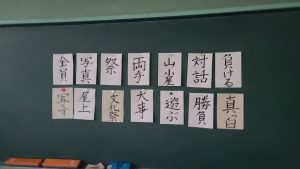 負ける
対話
山小屋
両手
祭
写真
全員
真っ白
勝負
遊ぶ
大事
文化祭
屋上
写す